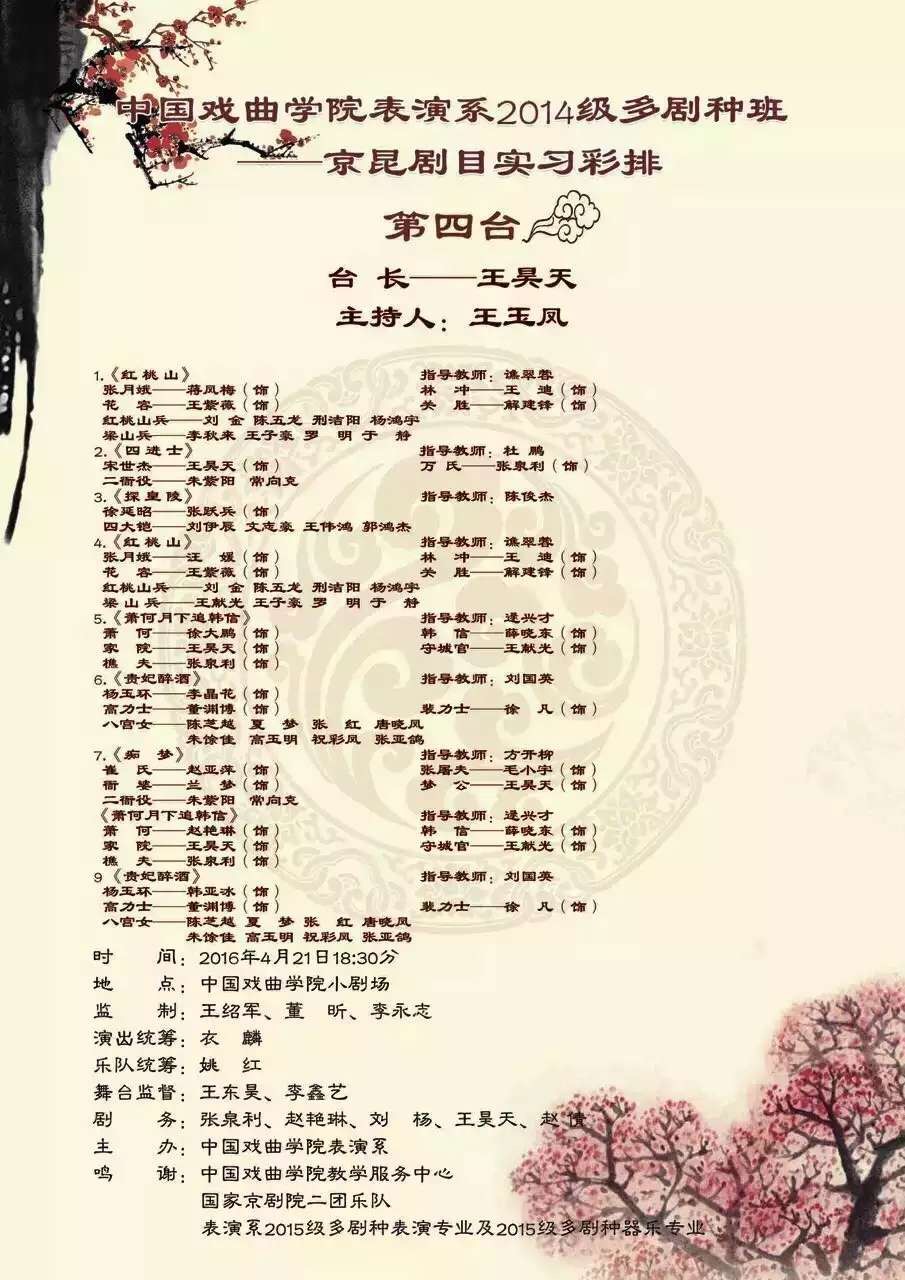 中国戏曲学院表演系2014级多剧种班
——京昆剧目实习彩排
第四台
台 长——王昊天
主持人：王玉凤
1.《红桃山》 指导教师：谯翠蓉
张月娥——蒋凤梅（饰） 林 冲——王 迪（饰）
花 容——王紫薇（饰） 关 胜——解建锋（饰）
红桃山兵——刘 金 陈五龙 邢洁阳 杨鸿宇
梁山兵——李秋来 王子豪 罗 明 于 静
2.《四进士》 指导教师：杜 鹏
宋世杰——王昊天（饰） 万 氏——张泉利（饰）
二衙役——朱紫阳 常向克
3.《探皇陵》 指导教师：陈俊杰
徐延昭——张跃兵（饰）
四大铠——刘伊辰 文志豪 王伟鸿 郭鸿杰
4.《红桃山》 指导教师：谯翠蓉
张月娥——汪 媛（饰） 林 冲——王 迪（饰）
花 容——王紫薇（饰） 关 胜——解建锋（饰）
红桃山兵——刘 金 陈五龙 邢洁阳 杨鸿宇
梁山兵——王献光 王子豪 罗 明 于 静
5.《萧何月下追韩信》 指导教师：逯兴才
萧 何——徐大鹏（饰） 韩 信——薛晓东（饰）
家 院——王昊天（饰） 守城官——王献光（饰）
樵 夫——张泉利（饰）
6.《贵妃醉酒》 指导教师：刘国英
杨玉环——李晶花（饰）
高力士——董渊博（饰） 裴力士——徐 凡（饰）
八宫女——陈芝越 夏 梦 张 红 唐晓凤
朱馀佳 高玉明 祝彩凤 张亚鸽
7.《痴 梦》 指导教师：方开柳
崔 氏——赵亚萍（饰） 张屠夫——毛小宇（饰）
衙 婆——兰 梦（饰） 梦 公——王昊天（饰）
二衙役——朱紫阳 常向克
《萧何月下追韩信》 指导教师：逯兴才
萧 何——赵艳琳（饰） 韩 信——薛晓东（饰）
家 院——王昊天（饰） 守城官——王献光（饰）
樵 夫——张泉利（饰）
9《贵妃醉酒》 指导教师：刘国英
杨玉环——韩亚冰（饰）
高力士——董渊博（饰） 裴力士——徐 凡（饰）
八宫女——陈芝越 夏 梦 张 红 唐晓凤
朱馀佳 高玉明 祝彩凤 张亚鸽
时 间：2016年4月21日18:30分
地 点：中国戏曲学院小剧场
监 制：王绍军、董 昕、李永志
演出统筹：衣 麟
乐队统筹：姚 红
舞台监督：王东昊、李鑫艺
剧 务：张泉利、赵艳琳、刘 杨、王昊天、赵 倩
主 办：中国戏曲学院表演系
鸣 谢：中国戏曲学院教学服务中心
国家京剧院二团乐队
表演系2015级多剧种表演专业及2015级多剧种器乐专业